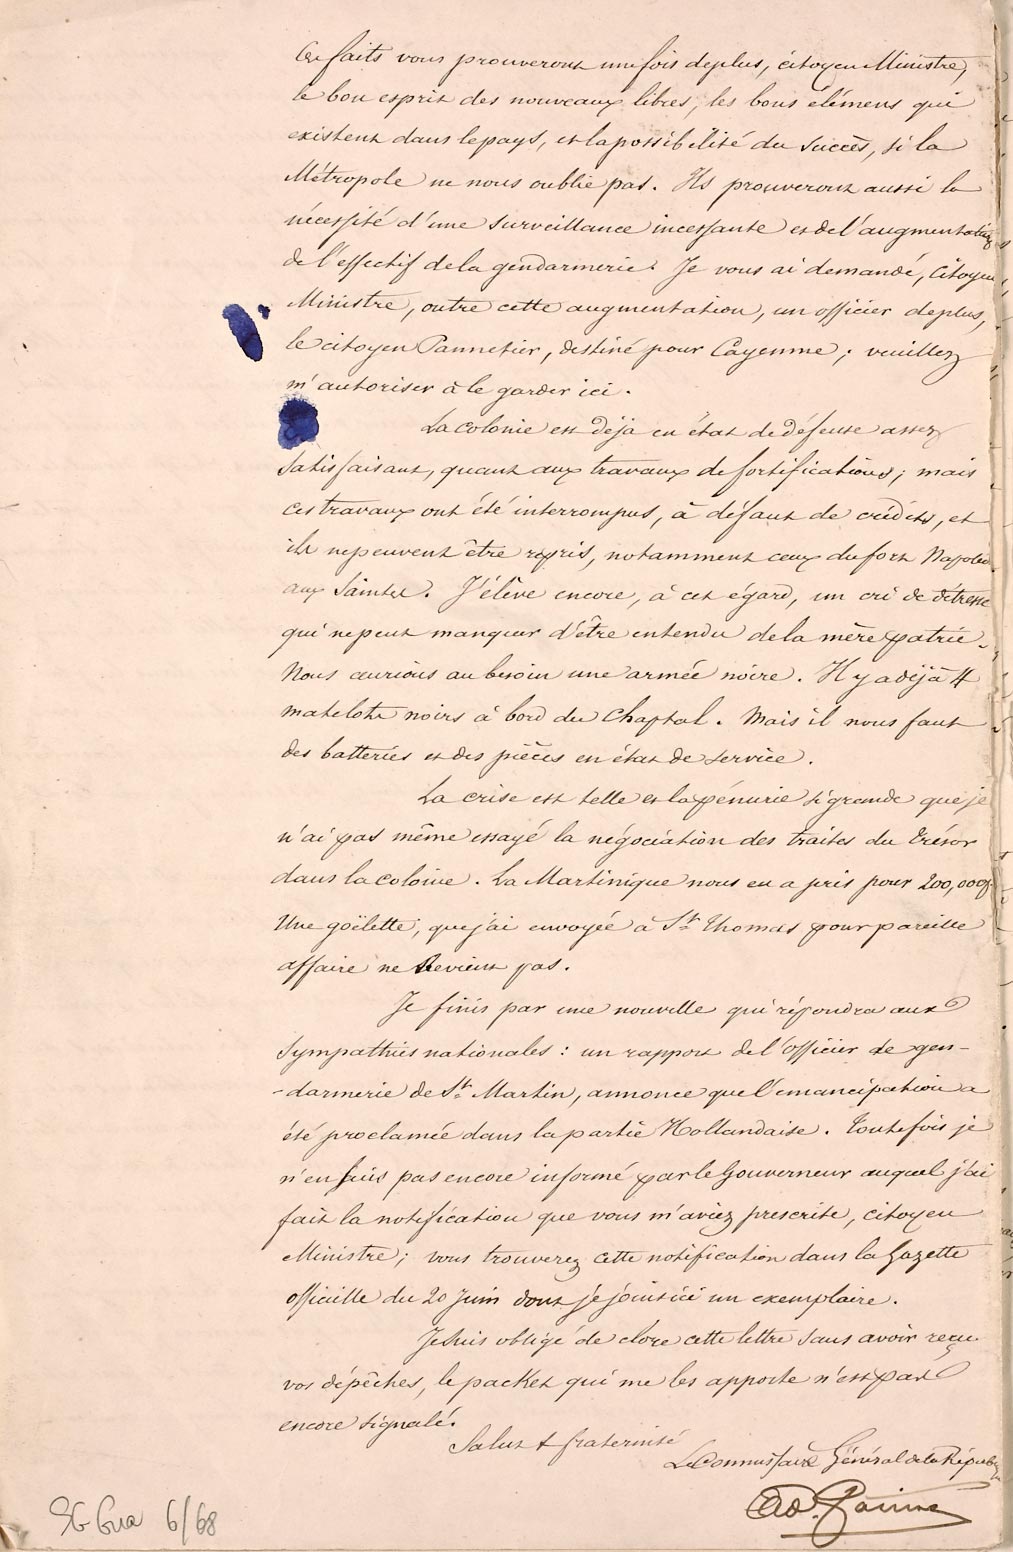 Ces faits vous prouveront une fois de plus, citoyen Ministre,
le bon esprit des nouveaux libres, les bons élémens qui
existent dans le pays, et la possibilité du succès, si la
Métropole ne nous oublie pas. Ils prouveront aussi la
nécessité d'une surveillance incessante et de l'augmentation
de l'effectif de la gendarmerie. Je vous ai demandé, Citoyen
Ministre, outre cette augmentation, un officier de plus,
le citoyen Pannetier, destiné pour Cayenne ; veuillez
m'autoriser à le garder ici.
La colonie est déjà en état de défense assez
satisfaisant, quant aux travaux de fortifications ; mais
ces travaux ont été interrompus, à défaut de crédits, et
ils ne peuvent être repris, notamment ceux du fort Napoléon
aux Saintes. J'élève encore, à cet égard, un cri de détresse
qui ne peut manquer d'être entendu de la mère patrie.
Nous aurions au besoin une armée noire. Il y a déjà 4
matelots noirs à bord du Chaptal. Mais il nous faut
des batteries et des pièces en état de service.
La crise est telle et la pénurie si grande que je
n'ai pas même essayé la négociation des traites du trésor
dans la colonie. La Martinique nous en a pris pour 200,000f
Une goëlette, que j'ai envoyée à St Thomas pour pareille
affaire ne Revient pas.
Je finis par une nouvelle qui répondra aux
sympathies nationales : un rapport de l'officier de gen-
-darmerie de St Martin, annonce que l'émancipation a
été proclamée dans la partie Hollandaise. Toutefois je
n'en suis pas encore informé par le Gouverneur auquel j'ai
fait la notification que vous m'aviez prescrite, citoyen
Ministre ; vous trouverez cette notification dans la Gazette
officielle du 20 Juin dont je joins ici un exemplaire.
Je suis obligé de clore cette lettre sans avoir reçu
vos dépêches, le packet qui me les apporte n'est pas
encore signalé.
Salut & fraternité
Le Commissaire Général de la République
Ad. Gatine
SG Gua 6/68